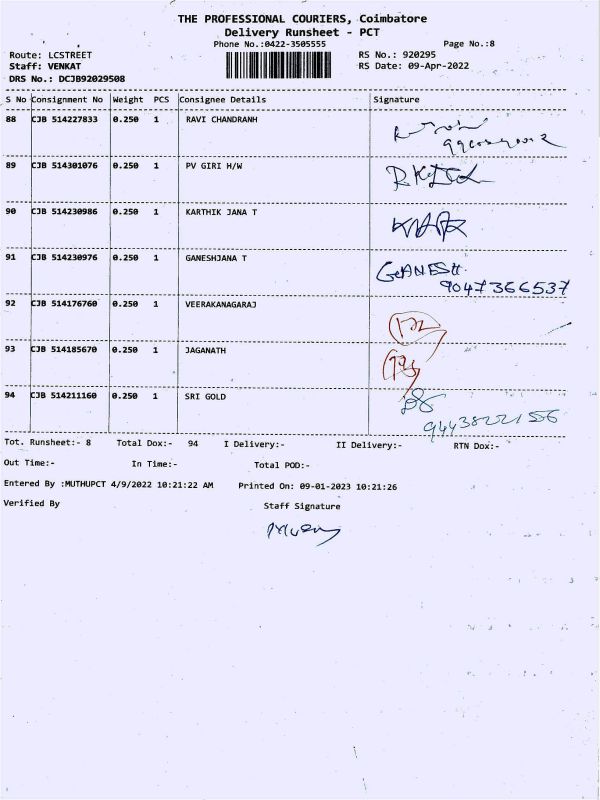 THE PROFESSIONAL COURIERS, Coimbatore
Delivery Runsheet - PCT
Phone No.:0422-3505555 Page No.:8
Route: LCSTREET RS No.: 920295
Staff: VENKAT RS Date: 09-Apr-2022
DRS No.: DCJB92029508
S No Consignment No Weight PCS Consignee Details Signature
88 CJB 514227833 0.250 1 RAVI CHANDRANH
89 CJB 514301076 0.250 1 PV GIRI H/W
90 CJB 514230986 0.250 1 KARTHIK JANA T
91 CJB 514230976 0.250 1 GANESHJANA T GANESH
9047366537
92 CJB 514176760 0.250 1 VEERAKANAGARAJ
93 CJB 514185670 0.250 1 JAGANATH
94 CJB 514211160 0.250 1 SRI GOLD
9443822156
Tot. Runsheet:- 8 Total Dox:- 94 I Delivery:- II Delivery:- RTN Dox:-
Out Time:- In Time:- Total POD:-
Entered By :MUTHUPCT 4/9/2022 10:21:22 AM Printed On: 09-01-2023 10:21:26
Verified By Staff Signature